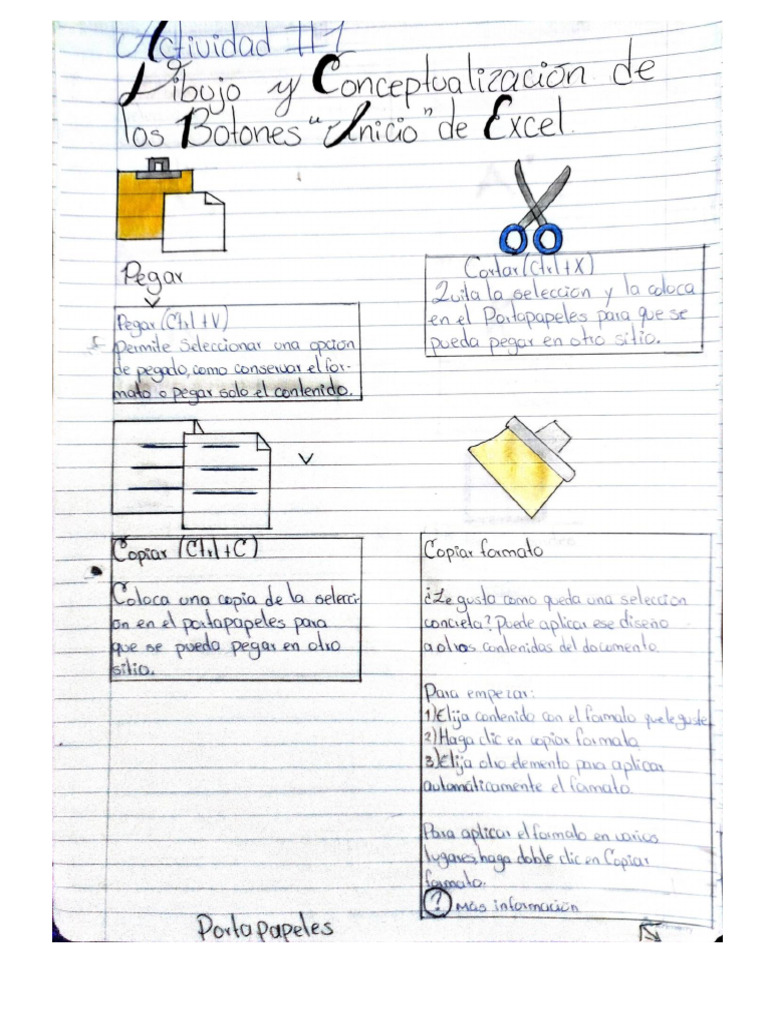 Actividad #1
Dibujo y Conceptualización de
los Botones "Inicio" de Excel.
Pegar
Pegar (Ctrl+V)
Permite Seleccionar una opcion
de pegado, como conservar el for-
mato o pegar solo el contenido.
Cortar (Ctrl+X)
Quita la seleccion y la coloca
en el Portapapeles para que se
pueda pegar en otro sitio.
Copiar (Ctrl+C)
Coloca una copia de la selecci-
on en el portapapeles para
que se pueda pegar en otro
sitio.
Copiar formato
¿Le gusta como queda una seleccion
concreta? Puede aplicar ese diseño
a otros contenidos del documento.
Para empezar:
1) Elija contenido con el formato que le guste
2) Haga clic en copiar formato
3) Elija otro elemento para aplicar
automáticamente el formato.
Para aplicar el formato en varios
lugares, haga doble clic en Copiar
formato.
? Más información
Portapapeles